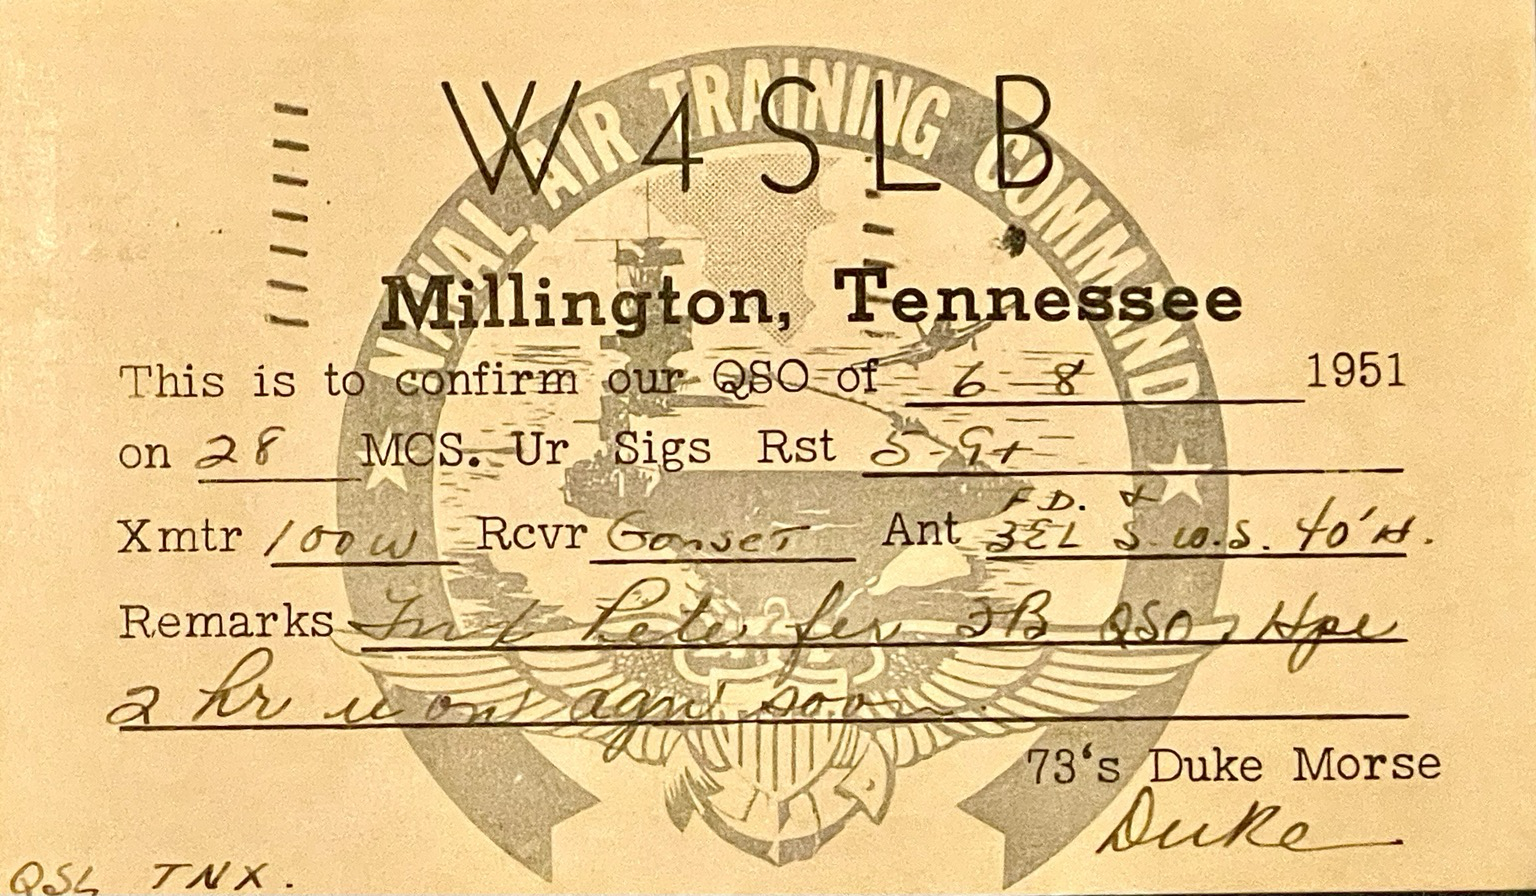 W4SLB
NAVAL AIR TRAINING COMMAND
Millington, Tennessee
This is to confirm our QSO of 6-8 1951
on 28 MCS. Ur Sigs Rst 5-9+
F.D. &
Xmtr 100W Rcvr Gonset Ant 3EL S.W.S. 40'H.
Remarks Tnx Pete fer 2B QSO, Hpe
2 hr u on agn soon.
73's Duke Morse
Duke
QSL TNX.